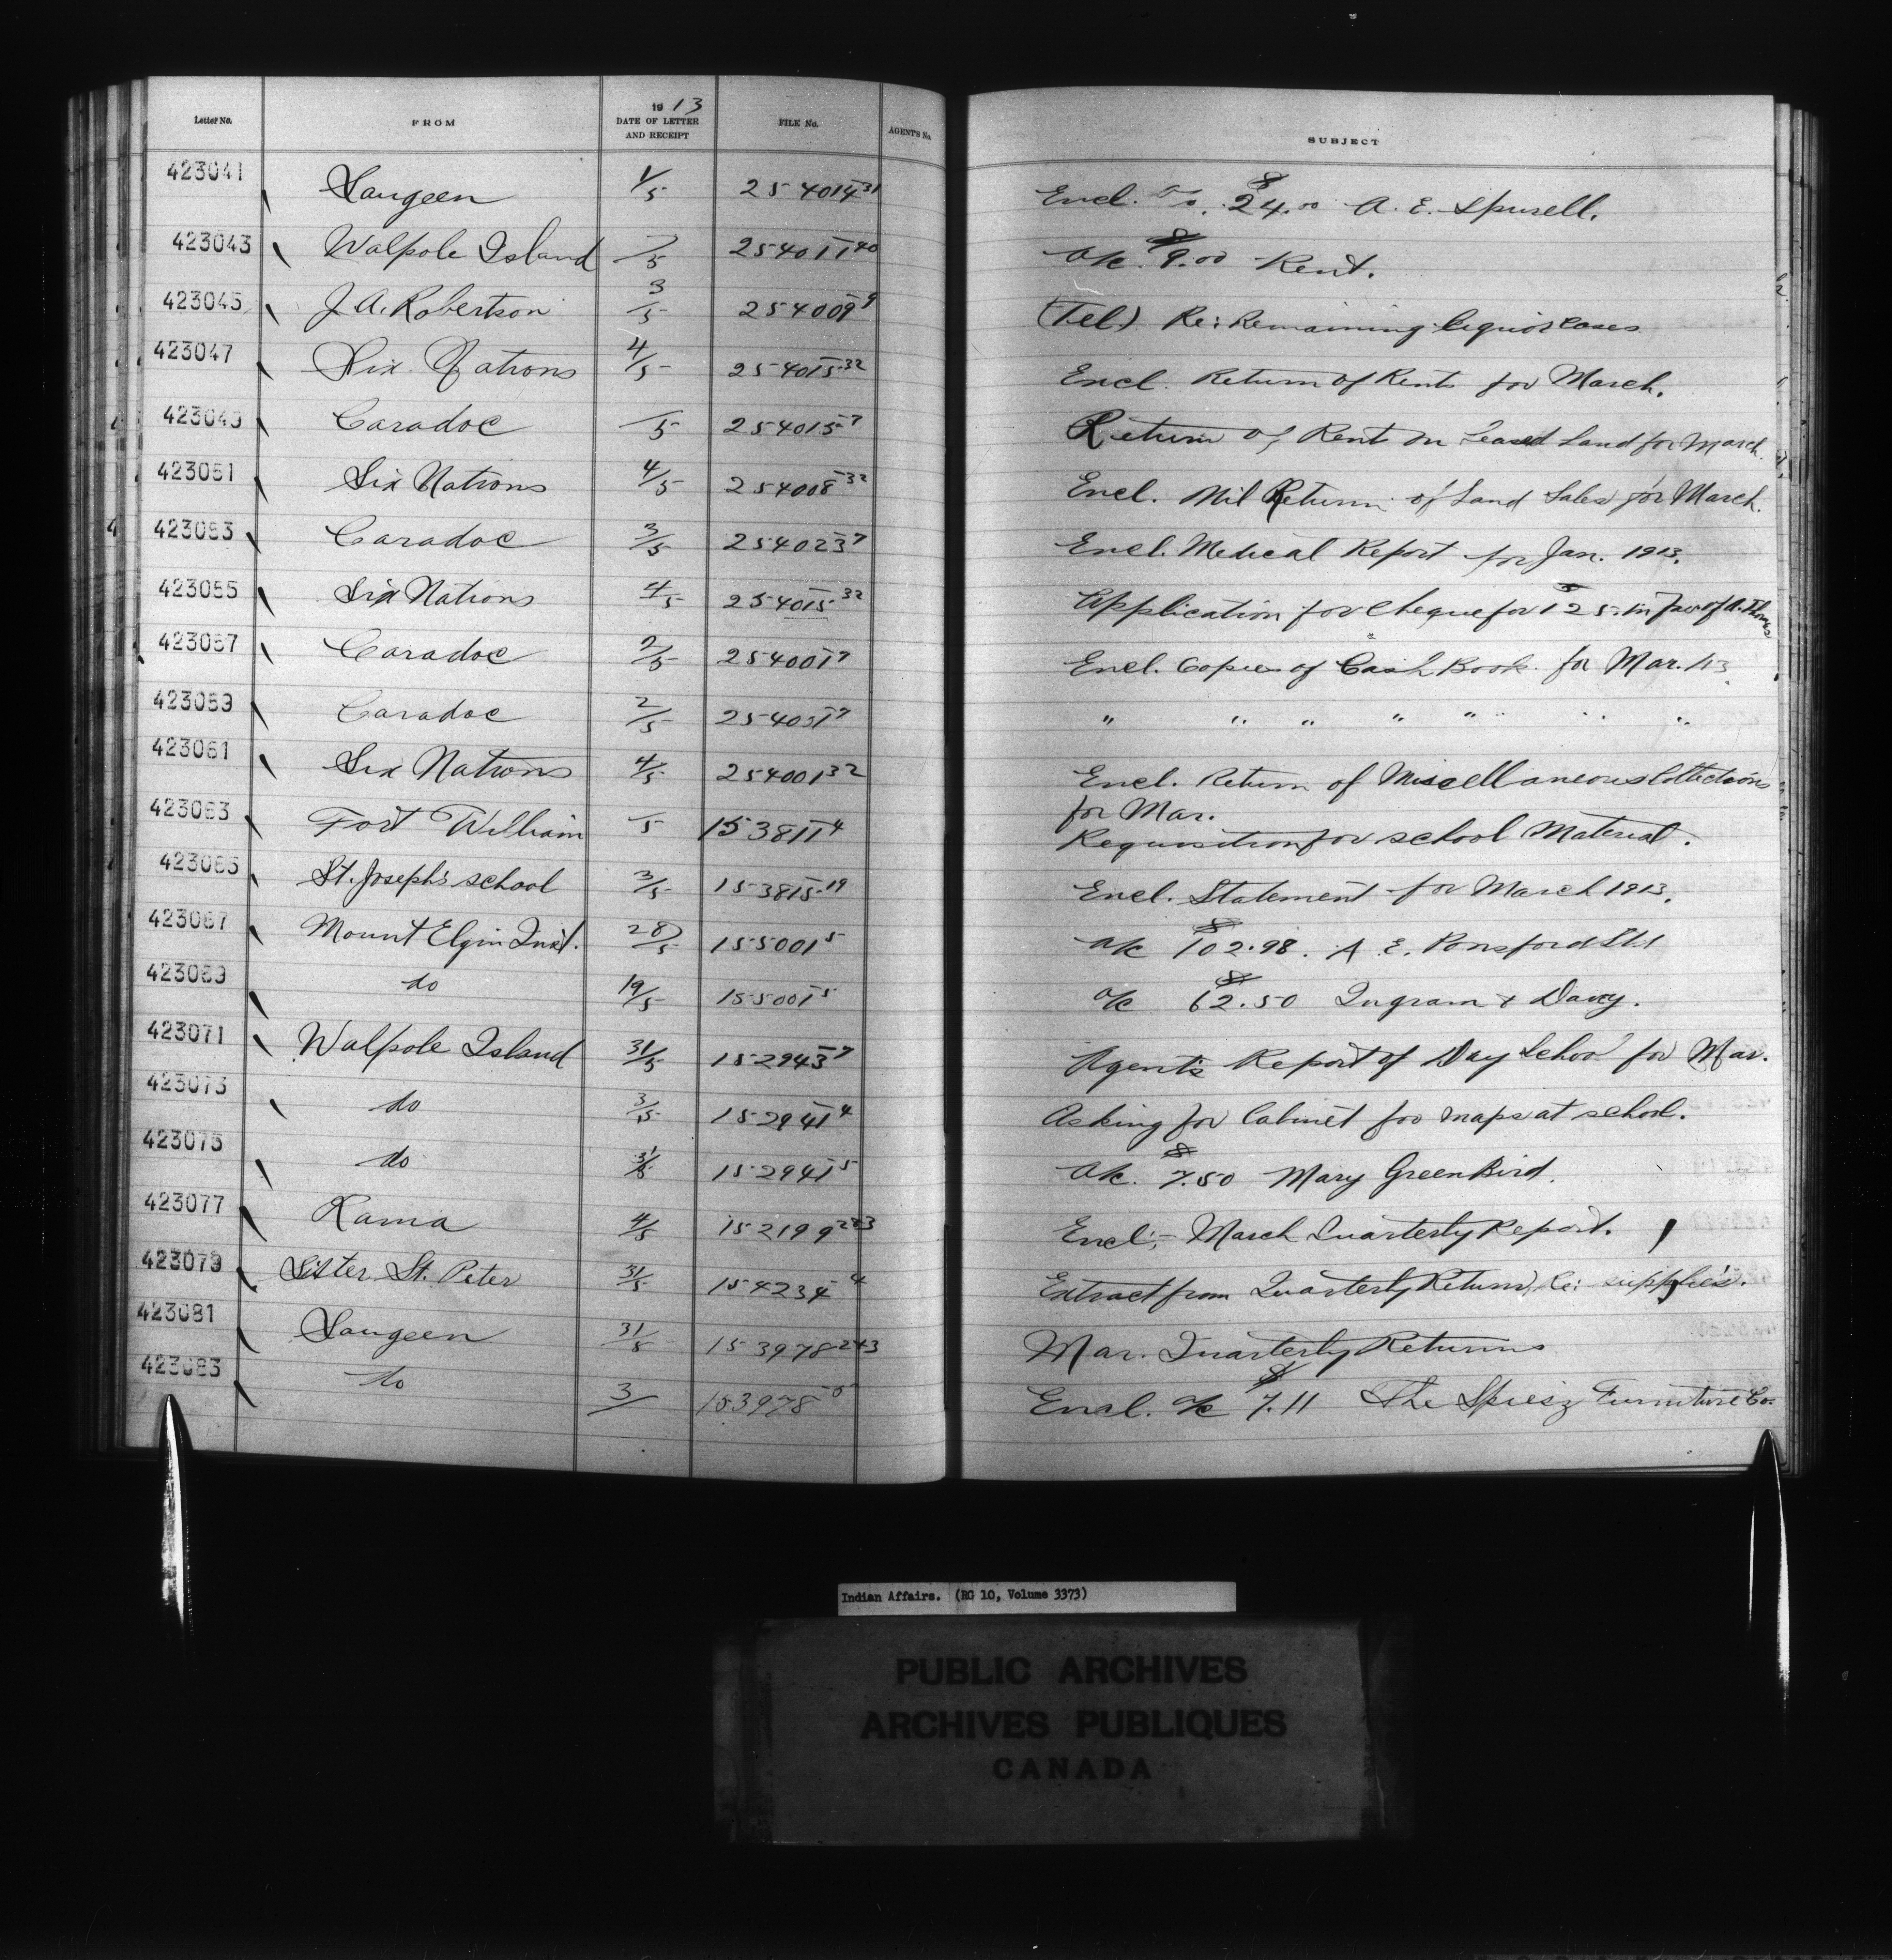 Letter No. FROM 1913 DATE OF LETTER AND RECEIPT FILE No. AGENT'S No. SUBJECT
423041 Saugeen 1/5 254014-31 Encl. a/c. $24.00 A. E. Spurell.
423043 Walpole Island /5 254011-40 a/c. $9.00 Rent.
423045 J. A. Robertson 3/5 254009-9 (Tel.) Re: Remaining liquor cases
423047 Six Nations 4/5 254015-32 Encl. Return of Rents for March.
423049 Caradoc /5 254015-7 Return of Rent on Leased Land for March.
423051 Six Nations 4/5 254008-32 Encl. Nil Return of Land Sales for March.
423053 Caradoc 3/5 254023-7 Encl. Medical Report for Jan. 1913.
423055 Six Nations 4/5 254015-32 Application for Cheque for $125. in fav. of A. Thomas
423057 Caradoc 2/5 254001-7 Encl. Copies of Cash Book for Mar. /13
423059 Caradoc 2/5 254031-7 " " " " " "
423061 Six Nations 4/5 254001-32 Encl. Return of Miscellaneous Collections
for Mar.
423063 Fort William /5 153811-4 Requisition for school Material.
423065 St. Joseph's school 3/5 153815-19 Encl. Statement for March 1913.
423067 Mount Elgin Inst. 28/5 155001-5 a/c $102.98. A. E. Ponsford Ltd
423069 do 19/5 155001-5 a/c $62.50 Ingram & Davey.
423071 Walpole Island 31/5 152943-7 Agent's Report of Day School for Mar.
423073 do 3/5 152941-4 Asking for Cabinet for maps at school.
423075 do 31/5 152941-5 a/c. $7.50 Mary GreenBird.
423077 Rama 4/5 152199-243 Encl:- March Quarterly Report.
423079 Sister St. Peter 31/5 154234-4 Extract from Quarterly Return, Re: supplies.
423081 Saugeen 31/5 153978-243 Mar. Quarterly Returns
423083 do 3/ 153978-5 Encl. a/c $7.11 The Spiesz Furniture Co.
Indian Affairs. (RG 10, Volume 3373)
PUBLIC ARCHIVES
ARCHIVES PUBLIQUES
CANADA